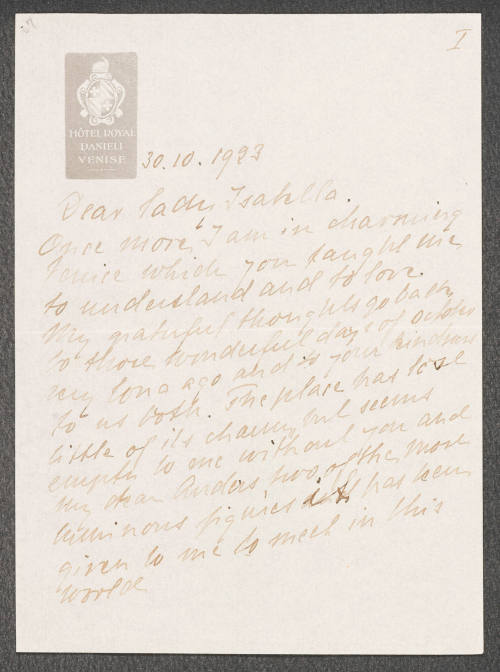 I
HÔTEL ROYAL
DANIELI
VENISE
30.10.1923
Dear Lady Isabella.
Once more, I am in charming
Venice which you taught me
to understand and to love.
My grateful thoughts go back
to those wonderful days of October
very long ago and to your kindness
to us both. The place has lost
little of its charm, but seems
empty to me without you and
my dear Anders two of the more
luminous figures it has been
given to me to meet in this
world